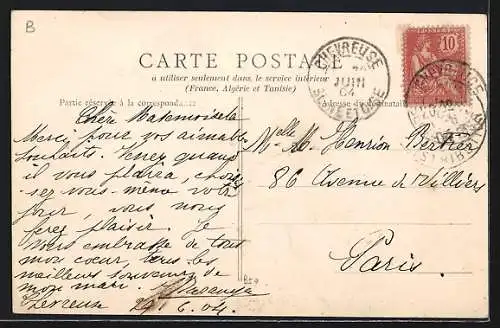 B
CARTE POSTALE
à utiliser seulement dans le service intérieur
(France, Algérie et Tunisie)
Partie réservée à la correspondance
Adresse du destinataire
CHEVREUSE
JUIN
04
SEINE ET OISE
10
Chère Mademoiselle
Merci pour vos aimables
souhaits. Venez quand
il vous plaira, choisis-
sez vous-même votre
jour, vous nous
ferez plaisir. Je
vous embrasse de tout
mon coeur,
meilleurs souvenirs de
mon mari.
Chevreuse 6.04.
Melle M. Henrion Berthier
86 Avenue de Villiers
Paris.